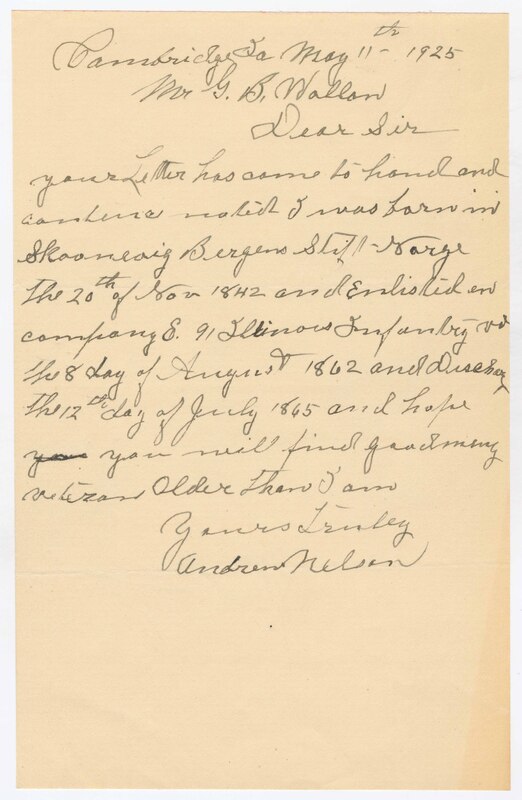 Cambridge Ia May 11th 1925
Mr G. B. Wollan
Dear Sir
your Letter has come to hand and
contence noted I was born in
Skoonevig Bergens Stift Norge
the 20th of Nov 1842 and Enlisted in
company E. 91 Illinois Infantry
the 8 day of August 1862 and Discharg
the 12th day of July 1865 and hope
you will find good many
veteran Older than I am
Yours Truley
Andrew Nelson